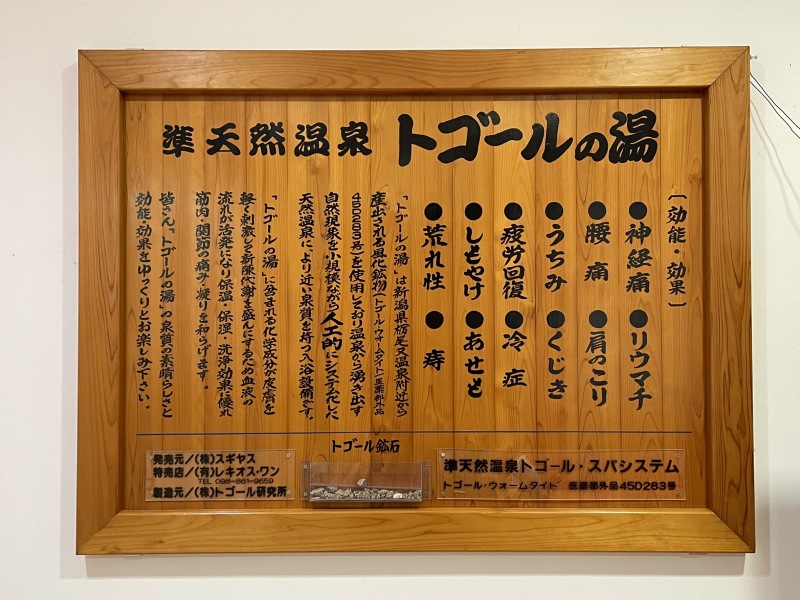 準天然温泉 トゴールの湯
〔効能・効果〕
●神経痛 ●リウマチ
●腰痛 ●肩のこり
●うちみ ●くじき
●疲労回復 ●冷症
●しもやけ ●あせも
●荒れ性 ●痔
「トゴールの湯」は新潟県栃尾又温泉附近から
産出される風化鉱物(トゴール・ウォームタイト)(医薬部外品
45D283号)を使用しており温泉から湧き出す
自然現象を小規模ながら人工的にシステム化した
天然温泉に、より近い泉質を持つ入浴設備です。
「トゴールの湯」に含まれる化学成分が皮膚を
軽く刺激して新陳代謝を盛んにするため血液の
流れが活発になり保温・保湿・洗浄効果に優れ
筋肉・関節の痛み・凝りを和らげます。
皆さん、「トゴールの湯」の泉質の素晴らしさと
効能・効果をゆっくりとお楽しみ下さい。
トゴール鉱石
発売元/(株)スギヤス
特売店/(有)レキオス・ワン
TEL 098-861-9659
製造元/(株)トゴール研究所
準天然温泉トゴール・スパシステム
トゴール・ウォームタイト 医薬部外品45D283号